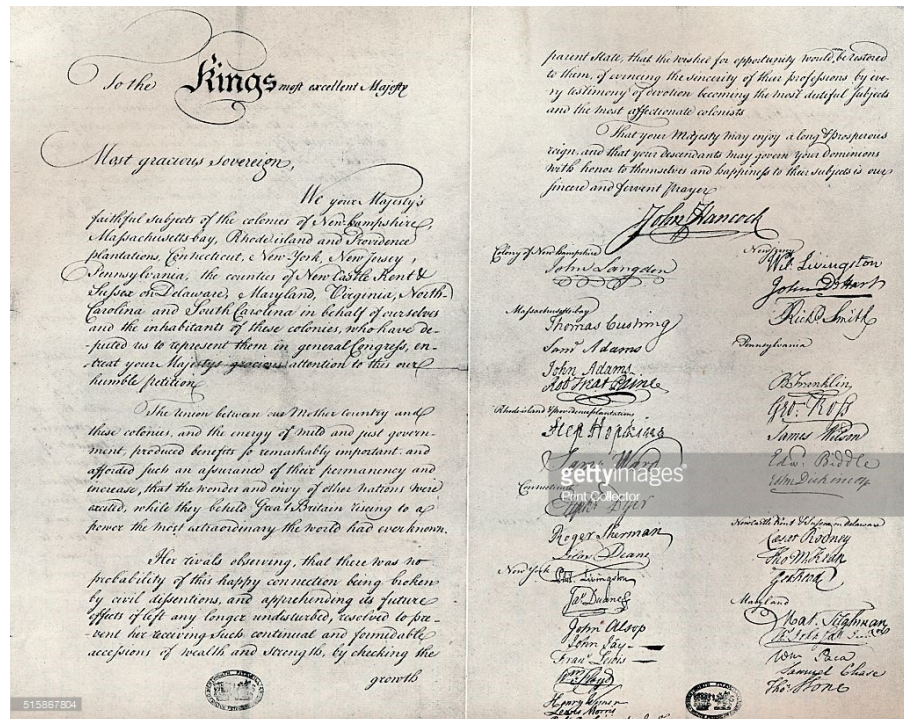 To the Kings most excellent Majesty
Most gracious sovereign,
We your Majesty's
faithful subjects of the colonies of New-hampshire,
Massachusetts-bay, Rhode island and Providence
plantations Connecticut, New-York, New Jersey,
Pennsylvania, the counties of New Castle Kent &
Sussex on Delaware, Maryland, Virginia, North-
Carolina and South Carolina in behalf of ourselves
and the inhabitants of these colonies, who have de-
puted us to represent them in general Congress, en-
treat your Majestys gracious attention to this our
humble petition
The union between our Mother Country and
these colonies, and the energy of mild and just govern-
ment, produced benefits so remarkably important and
afforded such an assurance of their permanency and
increase, that the wonder and envy of other nations were
excited, while they beheld Great Britain rising to a
power the most extraordinary the world had ever known.
Her rivals observing, that there was no
probability of this happy connection being broken
by civil dissentions, and apprehending its future
effects if left any longer undisturbed, resolved to pre-
vent her receiving such continual and formidable
accessions of wealth and strength, by checking the
growth
parent State, that the wished for opportunity would be restored
to them, of evincing the sincerity of their professions by eve-
ry testimony of devotion becoming the most dutiful subjects
and the most affectionate colonists
That your Majesty may enjoy a long & prosperous
reign, and that your descendants may govern your dominions
with honor to themselves and happiness to their subjects is our
sincere and fervent prayer
John Hancock
Colony of New hampshire
John Langdon
Massachusetts-bay
Thomas Cushing
Saml Adams
John Adams
Rob Treat Paine
Rhode island & Providence plantations
Step Hopkins
Sam: Ward
Connecticut
Elipht Dyer
Roger Sherman
Silas Deane
New York
Phil. Livingston
Jas. Duane
John Alsop
John Jay
Frans. Lewis
Wm Floyd
Henry Wisner
Lewis Morris
New Jersey
Wil. Livingston
John D Hart
Richd Smith
Pennsylvania
B Franklin
Geo: Ross
James Wilson
Edw. Biddle
John Dickinson
Newcastle Kent & Sussex on delaware
Caesar Rodney
Tho M:Kean
Geo Read
Maryland
Mat. Tilghman
Wm Paca
Samuel Chase
Thos Stone
gettyimages
Print Collector
515867804